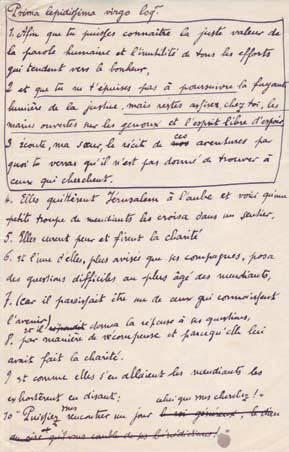 Prima lepidissima virgo loq.
1. Afin que tu puisses connaître la juste valeur de
la parole humaine et l'inutilité de tous les efforts
qui tendent vers le bonheur,
2 et que tu ne t'épuises pas à poursuivre la fuyante
lumière de la justice, mais restes assise, chez toi, les
mains ouvertes sur les genoux et l'esprit libre d'espoir,
3 écoute, ma sœur, le récit de ces aventures par
quoi tu verras qu'il n'est pas donné de trouver à
ceux qui cherchent.
4. Elles quittèrent Jérusalem à l'aube et voici qu'une
petite troupe de mendiants les croisa dans un sentier.
5. Elles eurent peur et firent la charité
6. et l'une d'elles, plus avisée que ses compagnes, posa
des questions difficiles au plus âgé des mendiants,
7. (car il paraissait être un de ceux qui connaissent
l'avenir)
et il répondit donna la réponse à ses questions,
8. par manière de récompense et parce qu'elle lui
avait fait la charité.
9 et comme elles s'en allaient les mendiants les
exhortèrent en disant:
celui que vous cherchez!"
10 "Puissiez vous rencontrer un jour le roi généreux, le dieu